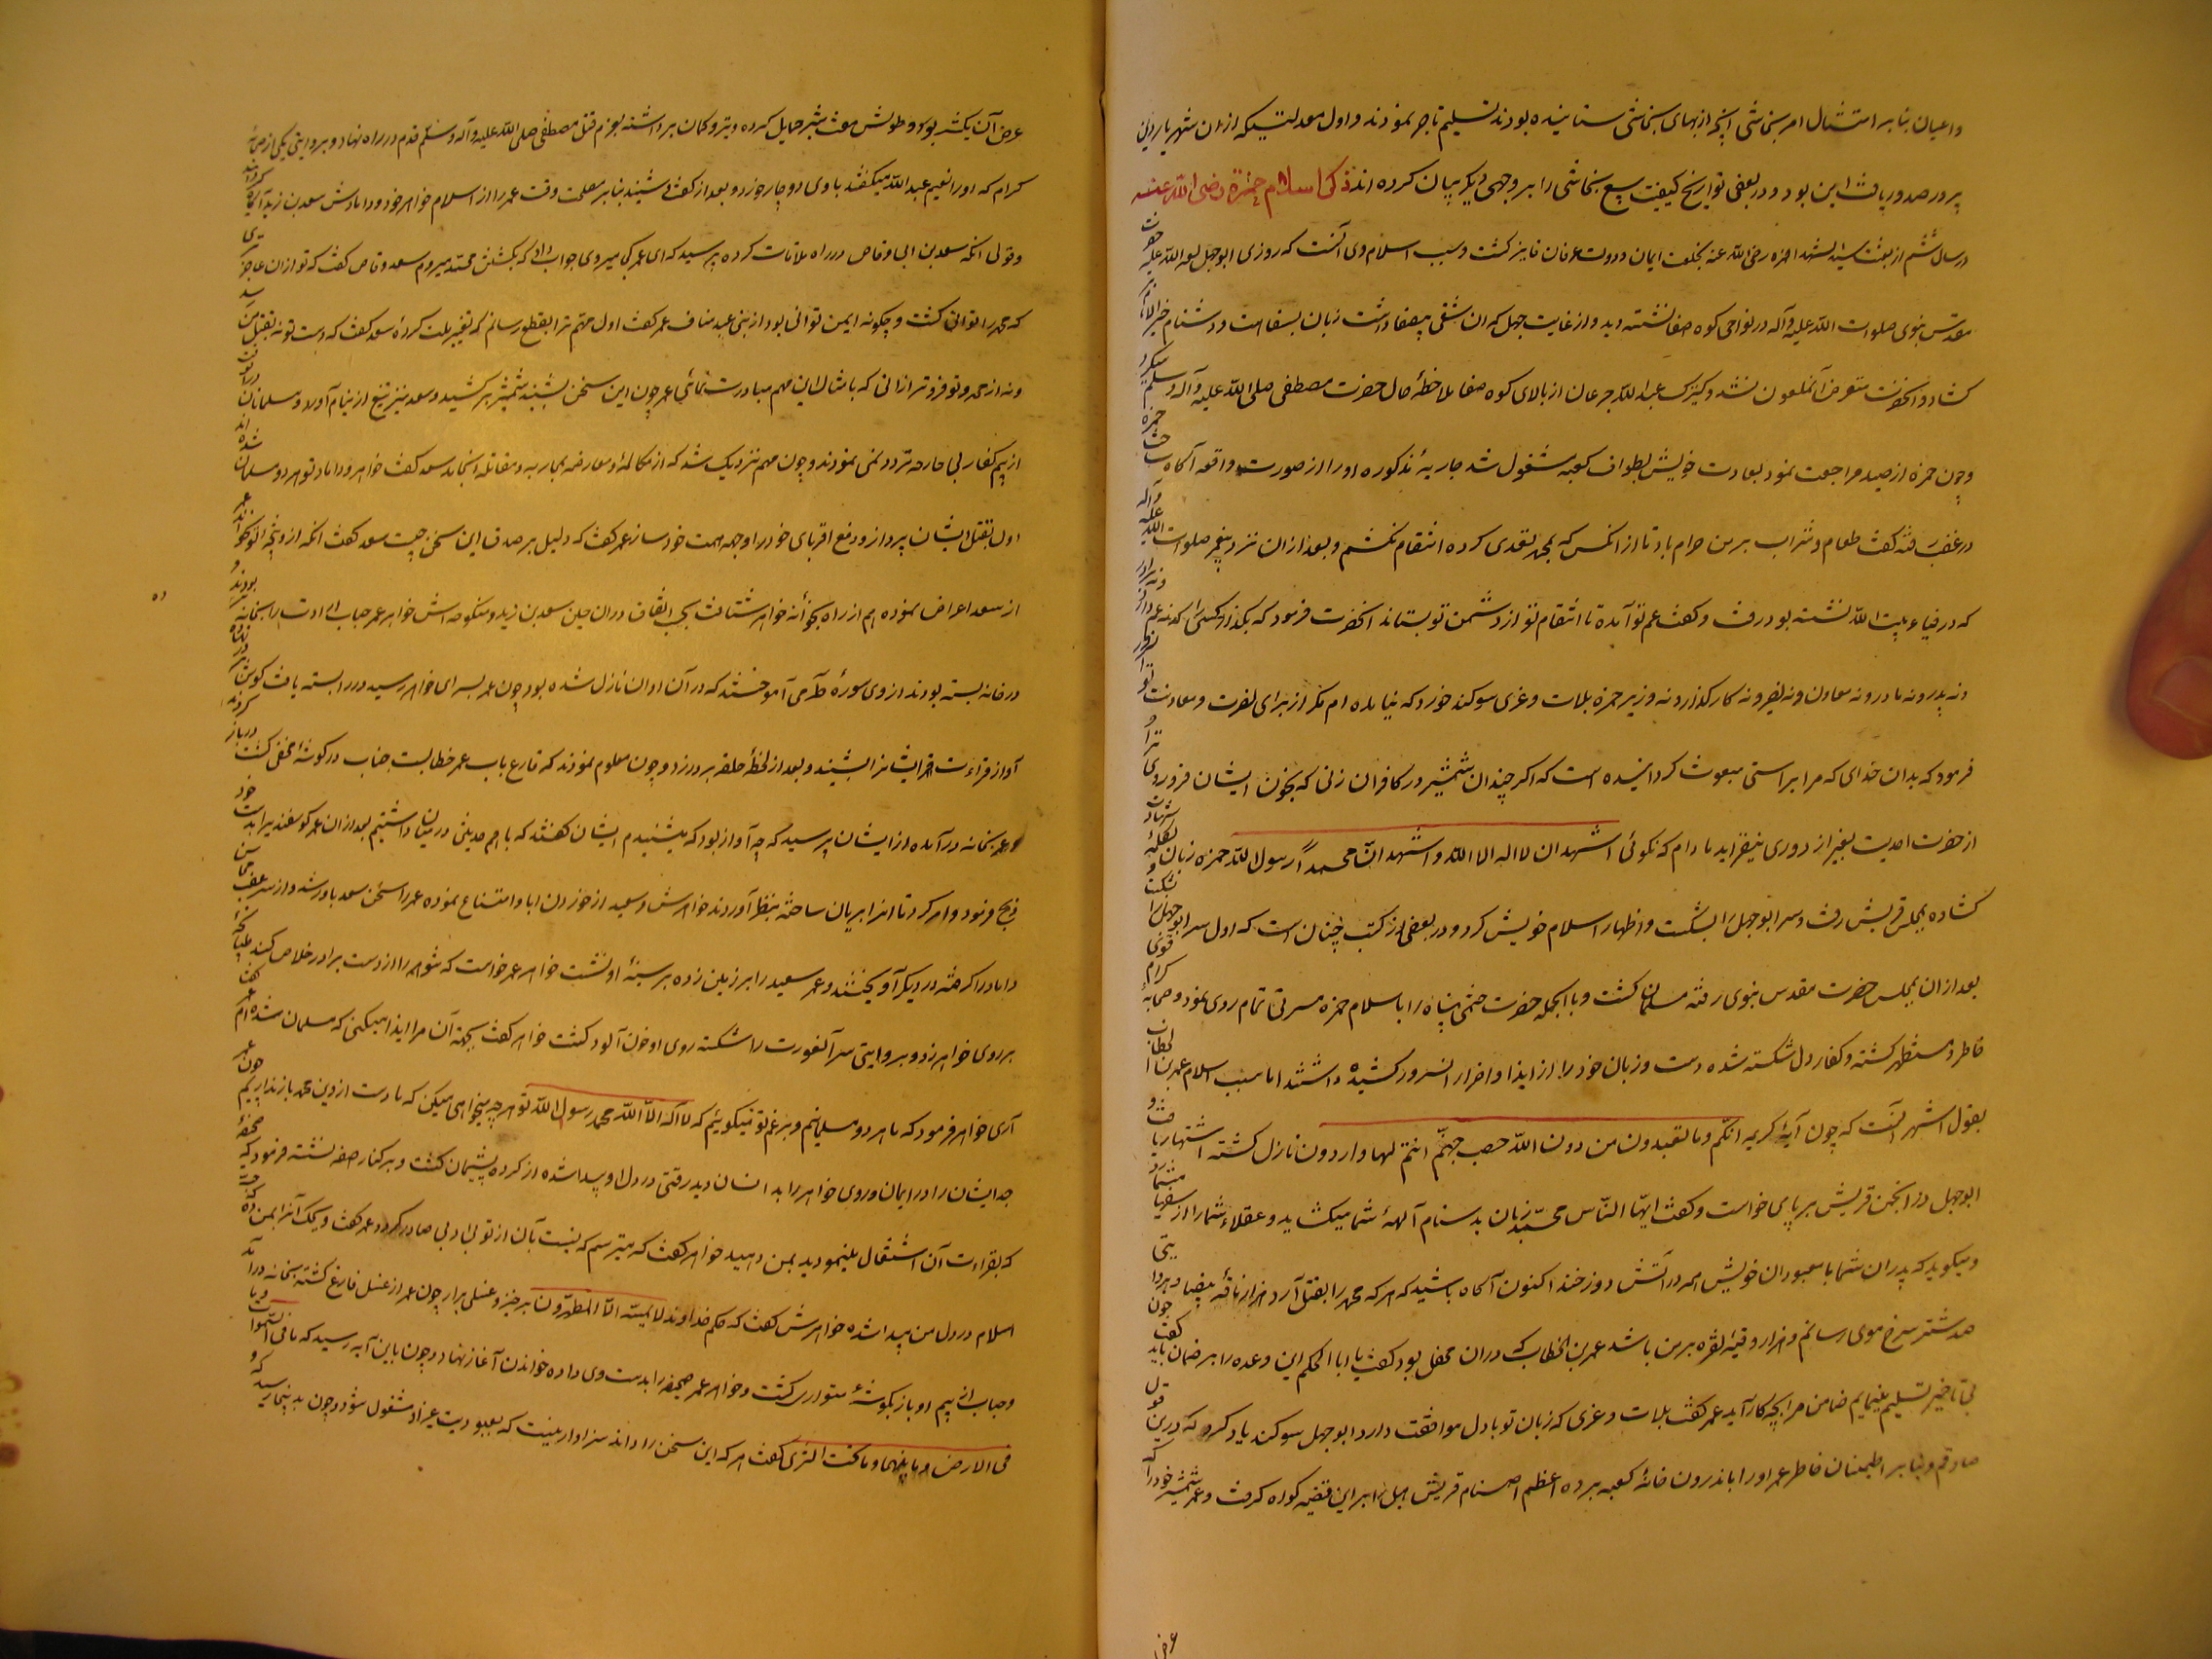 واعیان بنابر امتثال امر نجاشی آنچه از بهای نجاشی ستانیده بودند تسلیم تاجر نمودند و اول معدلتیکه ازان شهریار
پرور صدور یافت این بود و در بعضی تواریخ کیفیت بیع نجاشی را بر وجهی دیگر بیان کرده اند ذکر اسلام حمزة رضی الله عنه
در سال ششم از بعثت سید الشهدا حمزه رضی الله عنه بخلعت ایمان و دولت عرفان فایز گشت و سبب اسلام وی آنست که روزی ابوجهل لعنه الله علیه حضرت
مقدس نبوی صلوات الله علیه وآله در نواحی کوه صفا نشسته دید و از غایت جهل که ان شقی داشت زبان بسفاهت و دشنام خیر الانام
کشاد و آنحضرت متعرض آنملعون نشد و کنیزک عبدالله جدعان از بالای کوه صفا ملاحظهٔ حال حضرت مصطفی صلی الله علیه وآله وسلم میکرد
و چون حمزه از صید مراجعت نمود بعادت خویش بطواف کعبه مشغول شد جاریهٔ مذکوره او را از صورت واقعه آگاه ساخت حمزه
در غضب شده گفت طعام و شراب بر من حرام باد تا از انکس که بمحمد تعدی کرده انتقام نکشم و بعد ازان نزد پیغمبر صلوات الله علیه وآله
که در فناء بیت الله نشسته بود رفت و گفت عم تو آمده تا انتقام تو از دشمن تو بستاند آنحضرت فرمود که بگذار کسی را که نه عم دارد و نه برادر
و نه پدر و نه مادر و نه معاون و نه نصیر و نه کارگذار و نه وزیر حمزه بلات و عزی سوگند خورد که نیامده ام مگر از برای نصرت و معاونت تو
فرمود که بدان خدای که مرا براستی مبعوث گردانیده است که اگر چندان شمشیر در کافران زنی که بخون ایشان فرو روی ترا
از حضرت احدیت بغیر از دوری نیفزاید مادام که نگوئی اشهد ان لا اله الا الله و اشهد ان محمداً رسول الله حمزه زبان بکلمهٔ شهادت
کشاده بمجلس قریش رفت و سر ابوجهل را بشکست و اظهار اسلام خویش کرد و در بعضی از کتب چنان است که اول سر ابوجهل را بشکست و
بعد ازان بمجلس حضرت مقدس نبوی رفته مسلمان گشت و بالجمله حضرت ختمی پناه را باسلام حمزه مسرتی تمام روی نمود و صحابهٔ کرام قوی
خاطر و مستظهر گشته و کفار دل شکسته شده دست و زبان خود را از ایذا و اضرار انسرور کشیده داشتند اما سبب اسلام عمر بن الخطاب
بقول اشهر آنست که چون آیهٔ کریمه انکم وما تعبدون من دون الله حصب جهنم انتم لها واردون نازل گشته اشتهار یافت و
ابوجهل در انجمن قریش بر پای خواست و گفت ایها الناس محمد زبان بدشنام آلههٔ شما میکشاید و عقلاء شما را از سفها میشمارد
و میگوید که پدران شما با معبودان خویش همه در آتش دوزخند اکنون آگاه باشید که هر که محمد را بقتل آرد هزار ناقه بیضا و بروایتی
صد شتر سرخ موی رسانم و هزار وقیه نقره بر من باشد عمر بن الخطاب که دران محفل بود گفت یا ابا الحکم این وعده را بر ضمان باید گفت چون
بی تاخیر تسلیم مینمایم ضامن مرا بچه کار آید عمر گفت بلات و عزی که زبان تو با دل موافقت دارد ابوجهل سوگند یاد کرد که درین قول
صادقم و بنابر اطمینان خاطر عمر او را باندرون خانهٔ کعبه برده اعظم اصنام قریش هبل را برین قضیه گواه گرفت و عمر شمشیر خود را که
عرض آن یکشبر بود و طولش هفت شبر حمایل کرده و تیر و کمان برداشته بعزم قتل مصطفی صلی الله علیه وآله وسلم قدم در راه نهاد و بروایتی یکی از صحابهٔ
کرام که او را نعیم عبدالله میگفتند با وی دوچار خورد و بعد از گفت و شنید بنابر مصلحت وقت عمر را از اسلام خواهر خود و دامادش سعید بن زید آگاه گردانید
و قولی آنکه سعد بن ابی وقاص در راه ملاقات کرده پرسید که ای عمر کجا میروی جواب داد که بکشتن محمد میروم سعد وقاص گفت که تو ازان عاجز تری
که محمد را توانی کشت و چگونه ایمن توانی بود از بنی عبد مناف عمر گفت اول مهم ترا بقطع رسانم که تغییر ملت کردهٔ سعد گفت که دست تو نه بقتل من رسد
و نه از محمد و تو فروتر ازانی که بامثال این مهم مبادرت نمائی عمر چون این سخن بشنید شمشیر برکشید و سعد نیز تیغ از نیام آورد و مسلمانان دران وقت
از بیم کفار بی جارحه تردد نمی نمودند و چون مهم نزدیک شد که از مکالمه و معارضه بمحاربه و مقاتله انجامد سعد گفت خواهر و داماد تو هر دو مسلمان شده اند
اول بقتل ایشان پرداز و دفع اقربای خود را وجههٔ همت خود ساز عمر گفت که دلیل بر صدق این سخن چیست سعد گفت آنکه از ذبیحه تو نخورند عمر
از سعد اعراض نموده هم از راه بخانه خواهر شتافت بحسب اتفاق دران حین سعد بن زید و منکوحه اش خواهر عمر خباب ارت را بخانه برده بودند و
در خانه بسته بودند از وی سورهٔ طه می آموختند که در آن اوان نازل شده بود چون عمر بسرای خواهر رسید در را بسته یافت گوش
آواز قراءت قرآن ایشانرا بشنید و بعد از لحظهٔ حلقه بر در زد و چون معلوم نمودند که قارع باب عمر خطابست خباب در گوشهٔ مخفی گشت در باز کردند
و عمر بخانه درآمده از ایشان پرسید که چه آواز بود که میشنیدم ایشان گفتند که با هم حدیثی در میان داشتیم بعد ازان عمر گوسفندی را بدست خود
ذبح فرمود و امر کرد تا انرا بریان ساخته بنظر آوردند خواهرش و سعید از خوردن ابا و امتناع نموده عمر را سخن سعد باور شد و از سر غضب محاسن
داماد را گرفته در دیگر آویختند و عمر سعید را بر زمین زده بر سینهٔ او نشست خواهر عمر خواست که شوهر را از دست برادر خلاص کند طپانچهٔ
بر روی خواهر زد و بروایتی سر آنعورت را شکسته روی او خون آلود گشت خواهر گفت بجهة آن مرا ایذا میکنی که مسلمان شده ام عمر گفت
آری خواهر فرمود که ما هر دو مسلمانیم و برغم تو میگوئیم که لا اله الا الله محمد رسول الله تو هر چه میخواهی میکن که ما دست از دین محمد باز نداریم چون عمر
جد ایشان را در ایمان و روی خواهر را بد انسان دید رقتی در دل او پیدا شده از کرده پشیمان گشت و بر کنار صفه نشسته فرمود که صحیفهٔ
که بقراءت آن اشتغال مینمودید بمن دهید خواهر گفت که میترسم که نسبت بآن از تو بی ادبی صادر گردد عمر گفت
اسلام در دل من پیدا شده خواهرش گفت که حکم خداوند لا یمسه الا المطهرون برخیز و غسلی برآر چون عمر از غسل فارغ گشته بخانه درآمد
و خباب از بیم او باز بگوشهٔ متواری گشت و خواهر عمر صحیفه را بدست وی داده خواندن آغاز نهاد و چون باین آیه رسید که ما فی السموات وما
فی الارض وما بینهما وما تحت الثری گفت هر که این سخن را داند سزاوار نیست که بعبودیت غیر او مشغول شود و چون بدینجا رسید که و